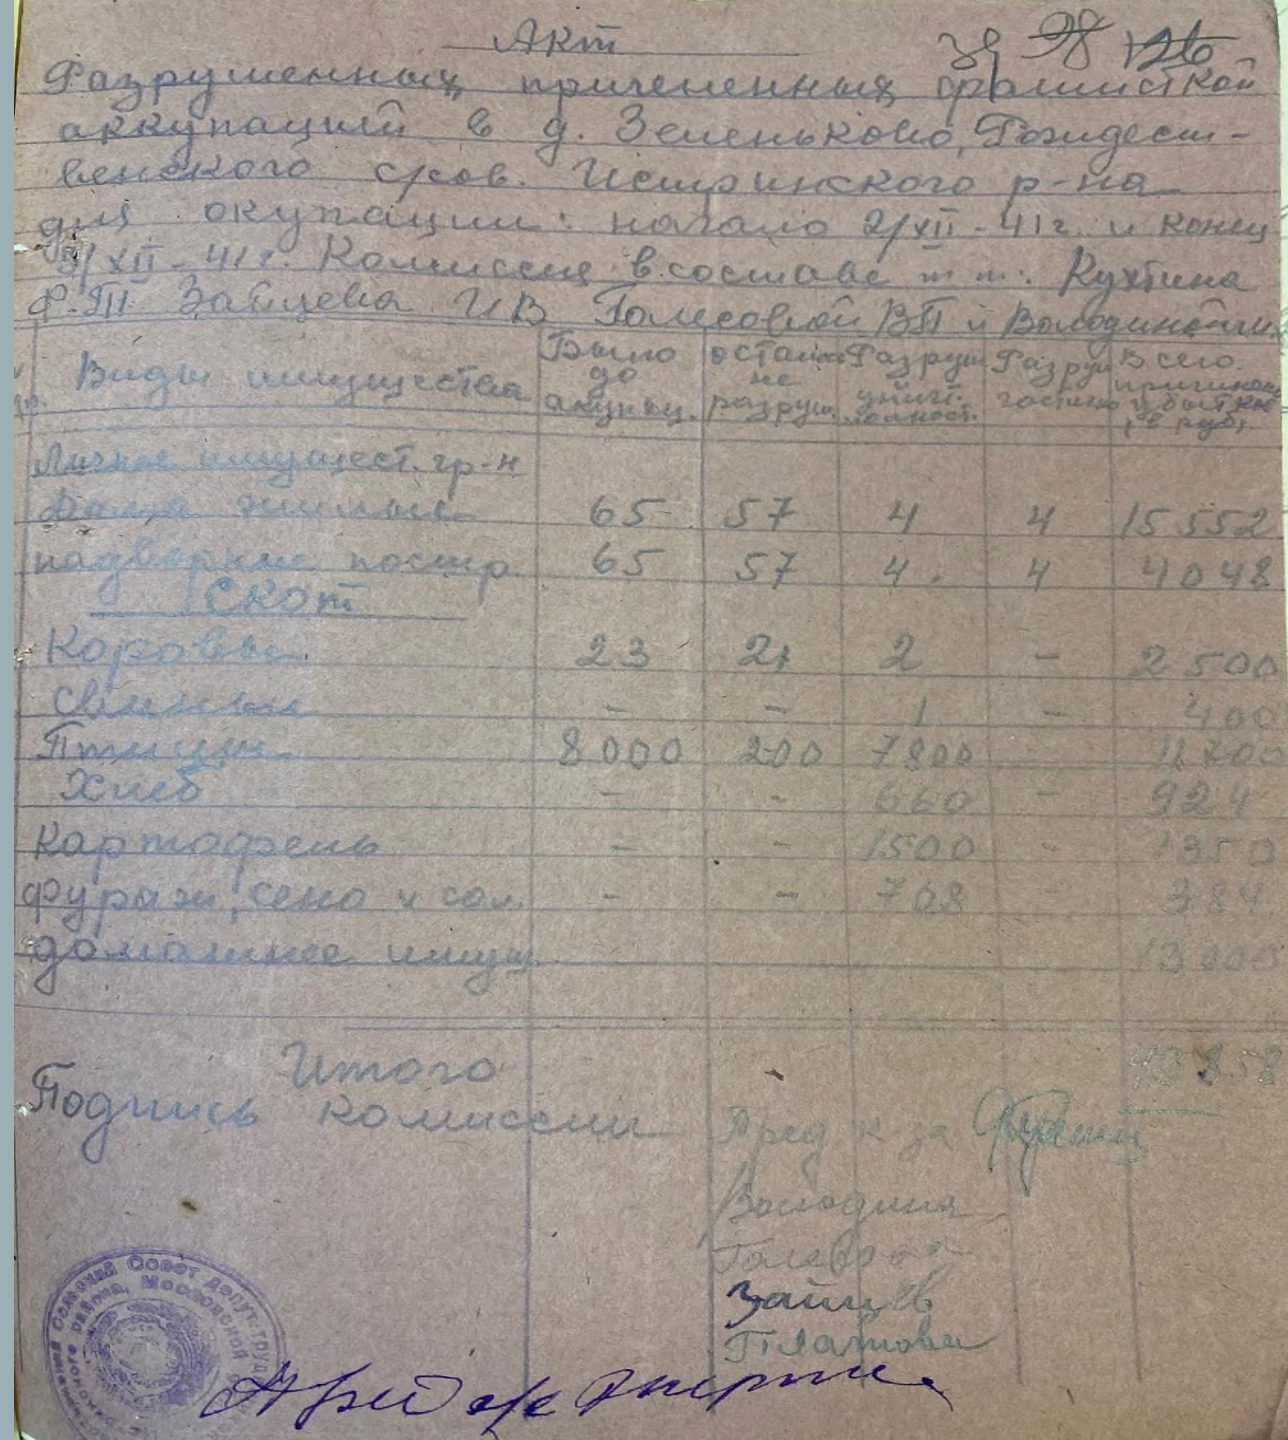 Акт
39 98 126
Разрушенных причененных фашисткой
аккупацией в д. Зеленьково, Рождест-
венского с/сов. Истринского р-на
дни окупации: начало 2/XII-41 г. и конец
/XII-41 г. Комиссия в составе т.т. Кухтина
Ф.П. Зайцева И В Голесовой ВП и Володиной
Виды имущества
Было до акупац.
остал не разруш.
Разруш уничт. полност.
Разруш частично
Всего причинен убытков в руб.
Личное имущест. гр-н
Дома жилые 65 57 4 4 15552
надворные постр 65 57 4. 4 4048
Скот
Коровы 23 21 2 - 2500
Свиньи - - 1 - 400
Птицы 8000 200 7800 11700
Хлеб - - 660 - 924
Картофель - - 1500 - 1350
фураж, сено и сол. - - 708 384
домашнее имущ 13000
Итого
Подпись комиссии Пред к-за
Володина
Зайцев
Платова
Сельский Совет депут. труд
района, Московской